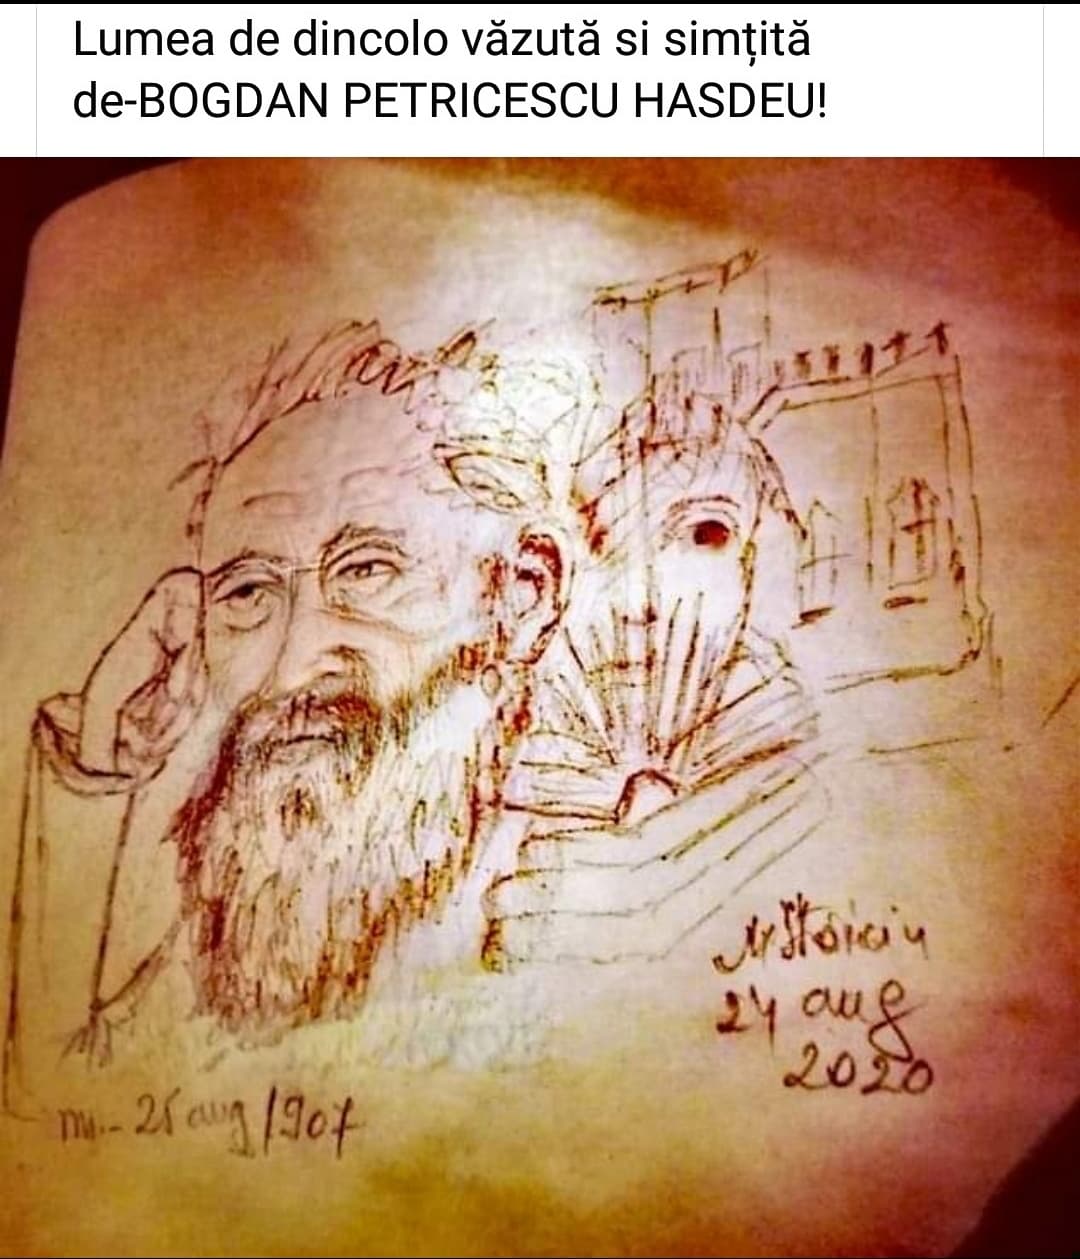 Lumea de dincolo văzută si simțită
de-BOGDAN PETRICESCU HASDEU!
24 aug
2020
25 aug 1907